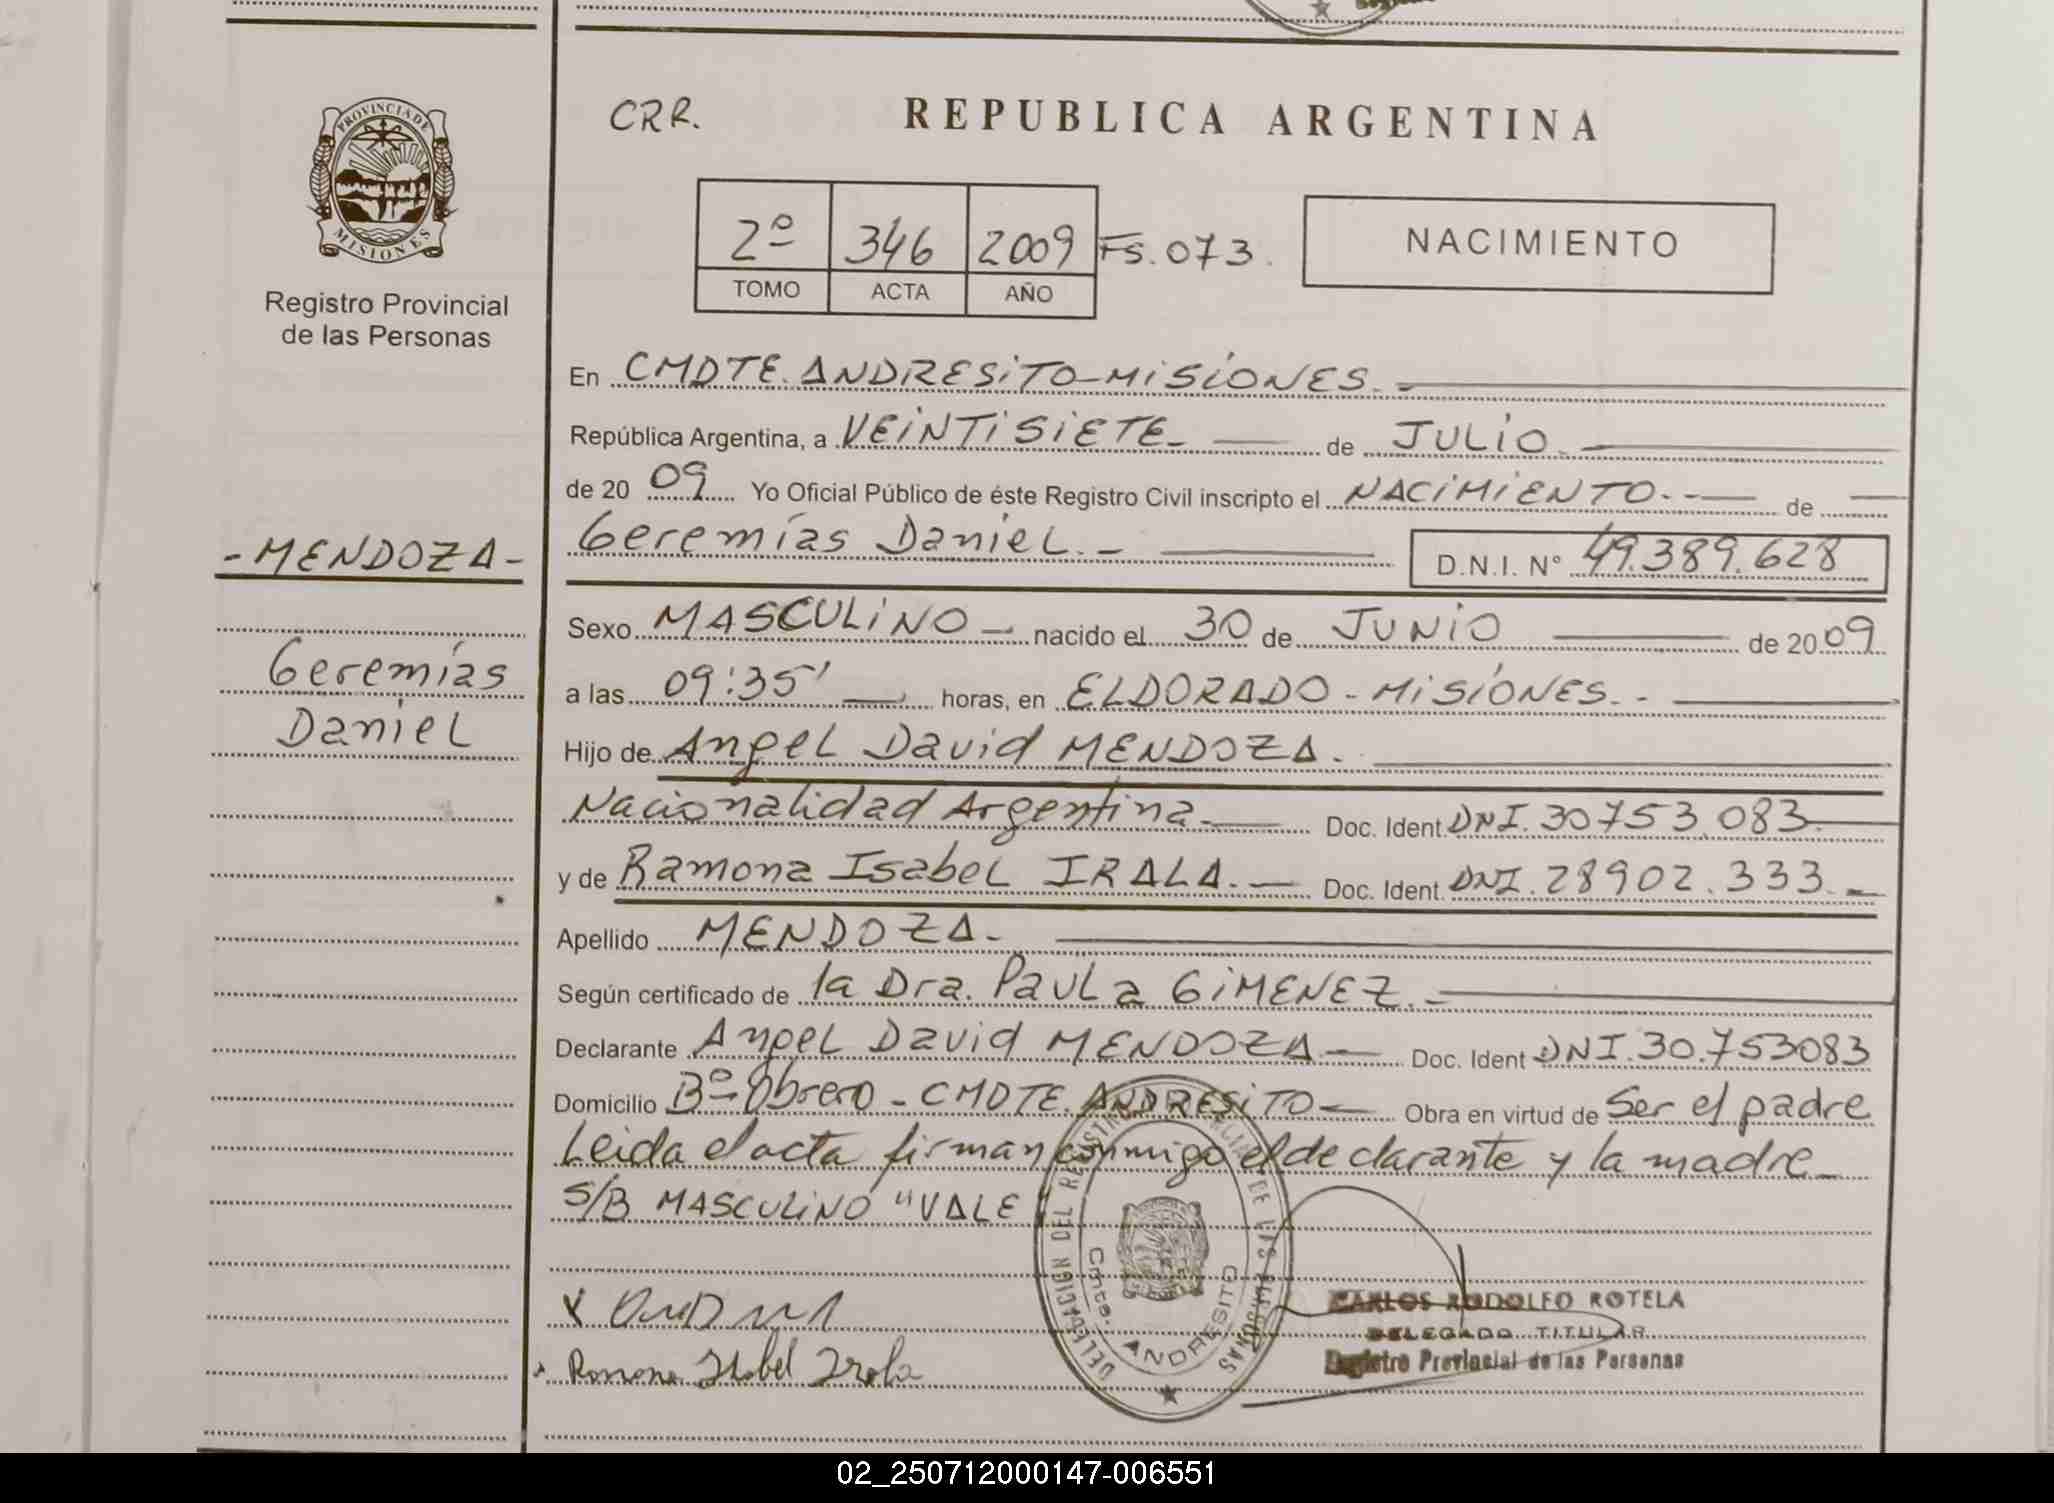 PROVINCIA DE
MISIONES
Registro Provincial
de las Personas
- MENDOZA -
Geremías
Daniel
CRR.
REPUBLICA ARGENTINA
2º 346 2009 Fs. 073.
TOMO ACTA AÑO
NACIMIENTO
En CMDTE. ANDRESITO - MISIONES. -
República Argentina, a VEINTISIETE - de JULIO. -
de 20 09 Yo Oficial Público de éste Registro Civil inscripto el NACIMIENTO. - de
Geremías Daniel. - D.N.I. N° 49.389.628
Sexo MASCULINO - nacido el 30 de JUNIO de 20 09
a las 09:35' horas, en ELDORADO - MISIONES. -
Hijo de Angel David MENDOZA.
Nacionalidad Argentina. Doc. Ident DNI. 30753.083
y de Ramona Isabel IRALA. - Doc. Ident. DNI. 28902.333. -
Apellido MENDOZA -
Según certificado de la Dra. Paula GIMENEZ. -
Declarante Angel David MENDOZA - Doc. Ident DNI. 30.753083
Domicilio Bº Obrero - CMDTE. ANDRESITO - Obra en virtud de Ser el padre
Leida el acta firman conmigo el declarante y la madre
S/B MASCULINO "VALE
x
Ramona Isabel Irala
DELEGACION DEL REGISTRO PROVINCIAL DE LAS PERSONAS
Cmte. ANDRESITO
CARLOS RODOLFO ROTELA
DELEGADO TITULAR
Registro Provincial de las Personas
02_250712000147-006551